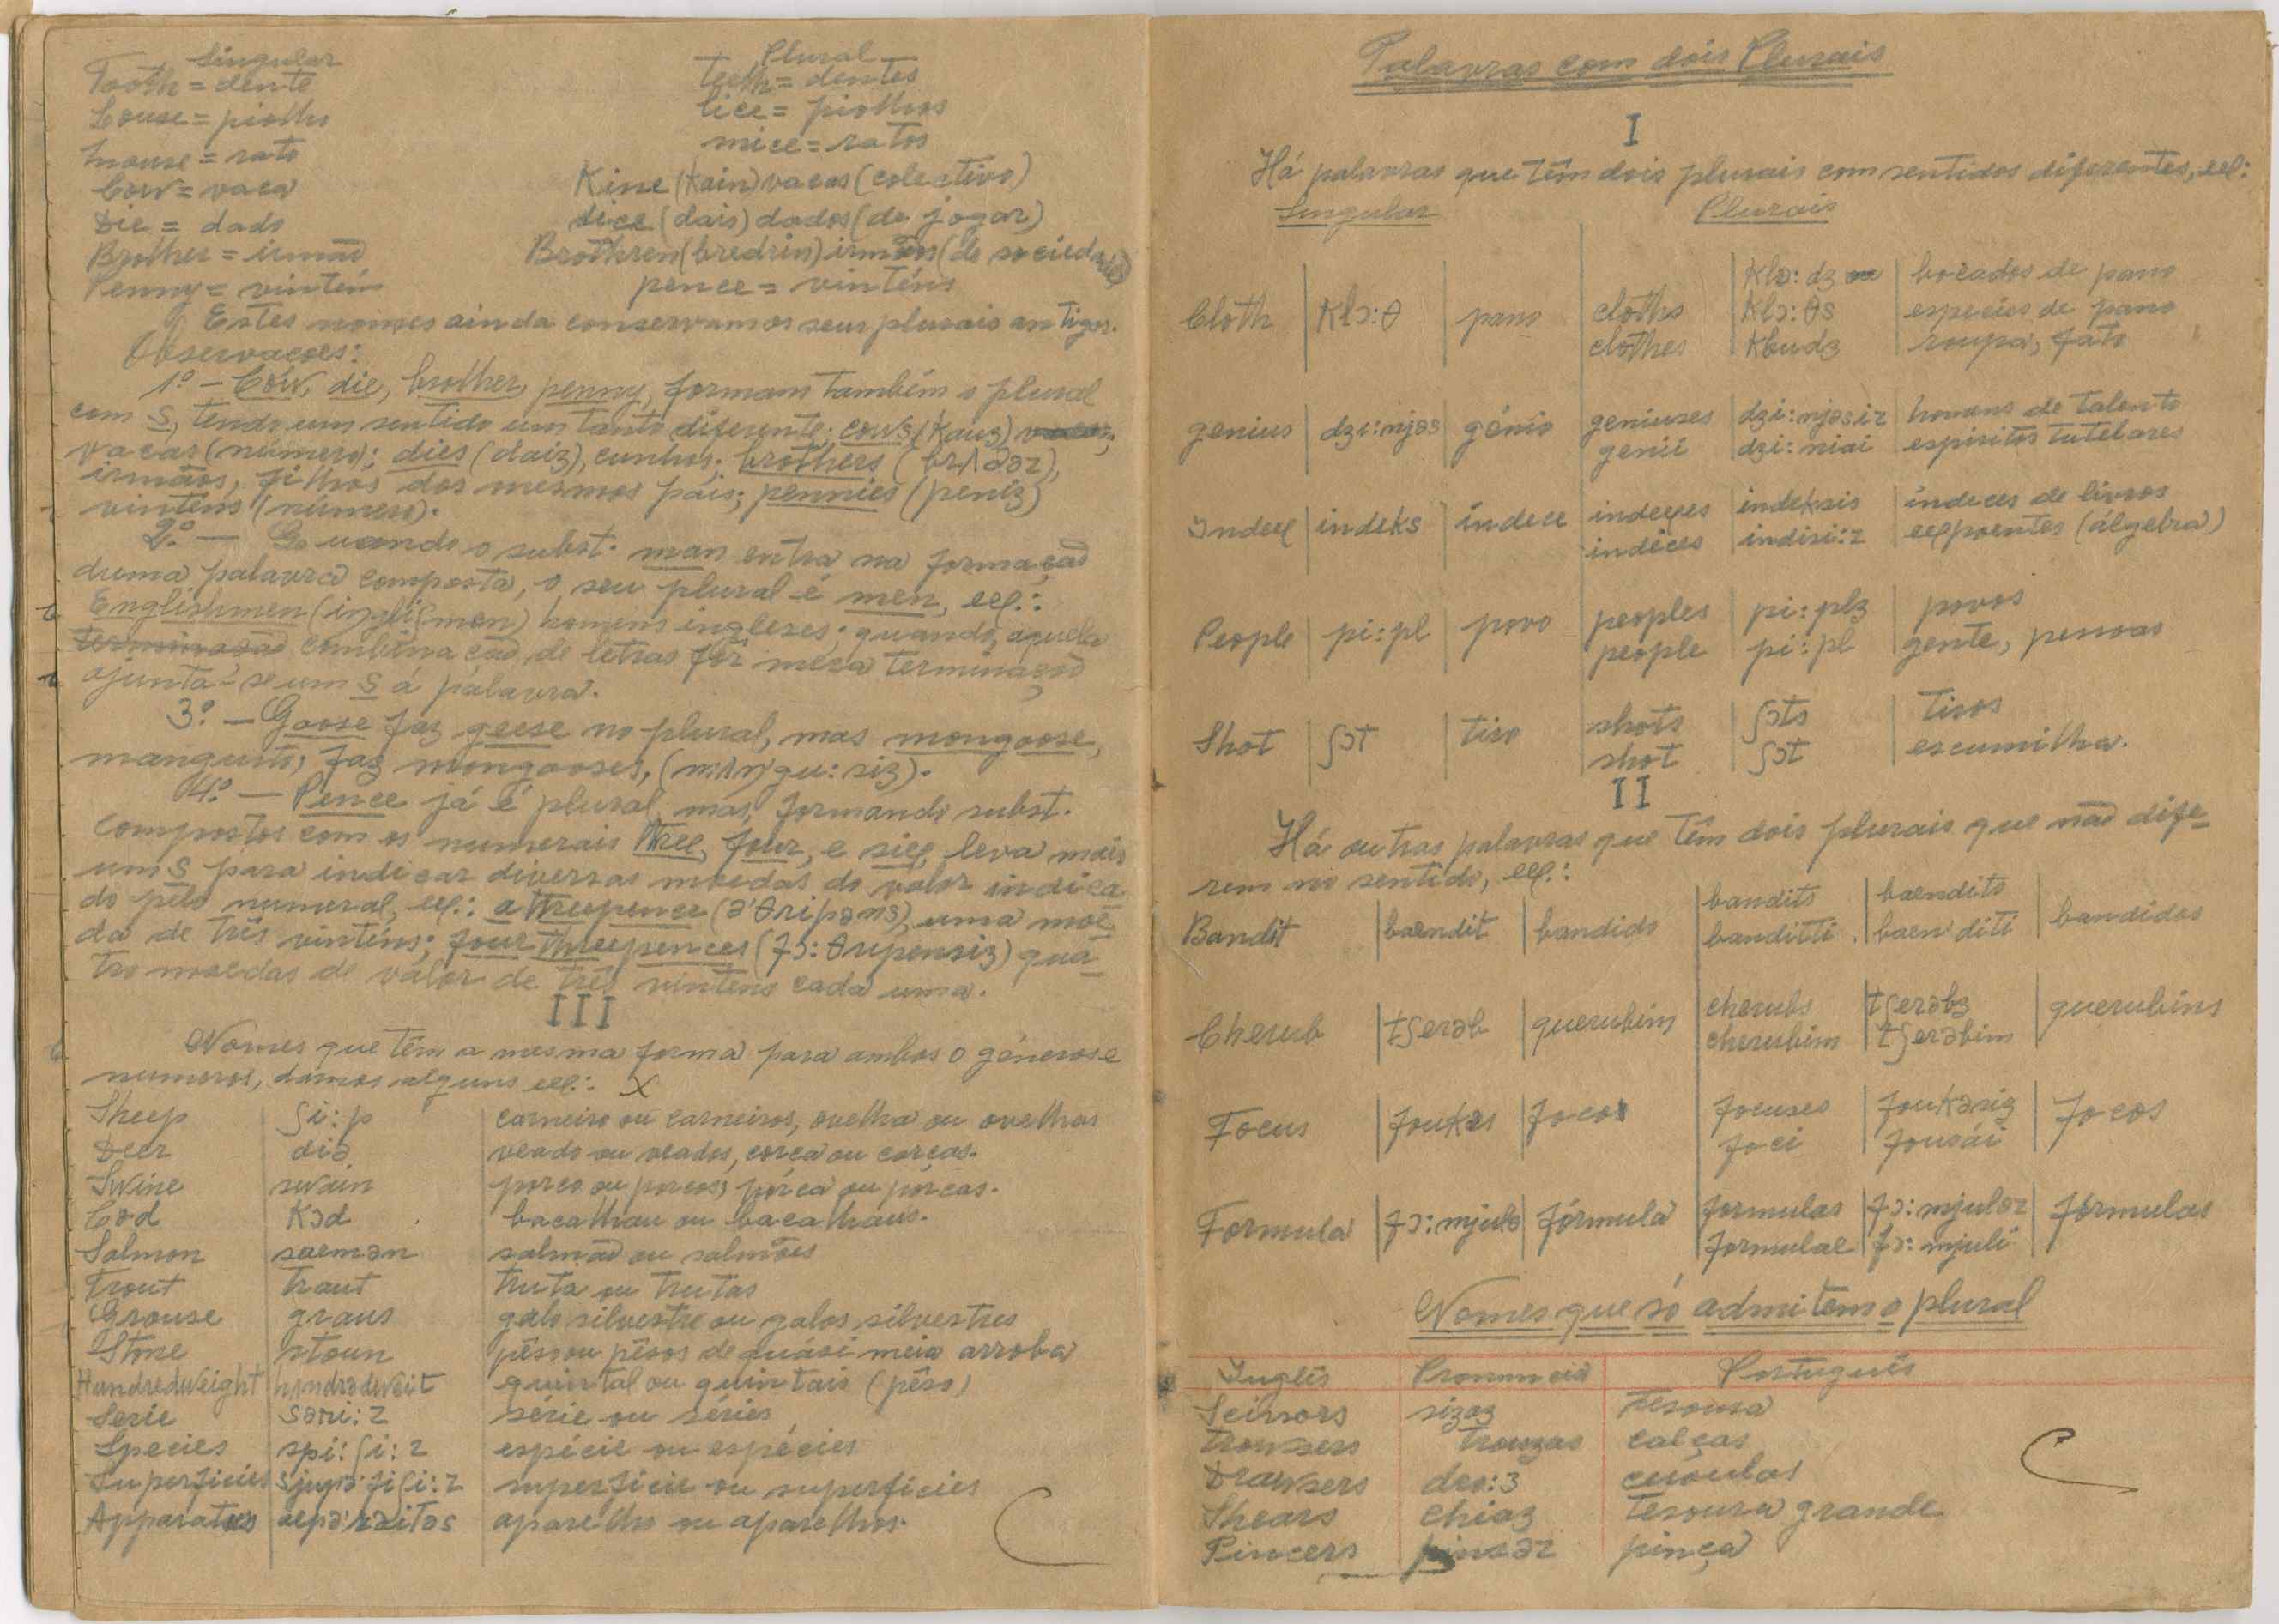 Singular Plural
Tooth = dente teeth = dentes
Louse = piolho lice = piolhos
mouse = rato mice = ratos
Cow = vaca Kine (Kain) vacas (colectivo)
Die = dado dice (dais) dados (de jogar)
Brother = irmão Brethren (bredrin) irmãos (de sociedade)
Penny = vintém pence = vinténs
Estes nomes ainda conservam os seus plurais antigos.
Observações:
1º - Cow, die, brother, penny, formam também o plural
com s, tendo um sentido um tanto diferente; cows (Kauz)
vacas (número); dies (daiz), cunhos; brothers (brʌdəz),
irmãos, filhos dos mesmos páis; pennies (peniz)
vinténs (número).
2º - Quando o subst. man entra na formação
duma palavra composta, o seu plural é men, ex.:
Englishmen (ingliʃmen) homens ingleses; quando, aquela
terminação combinação de letras fôr mera terminação
ajunta-se um s á palavra.
3º - Goose faz geese no plural, mas mongoose,
mangusto, faz mongooses, (mʌŋgu:siz).
4º - Pence já é plural, mas, formando subst.
compostos com os numerais three, four, e six, leva mais
um s para indicar diversas moedas do valor indica-
do pelo numeral, ex.: a threepence (ə'θripəns), uma moe-
da de três vinténs; four threepences (fɔ: θripensiz) qua-
tro moedas de valor de três vinténs cada uma.
III
Nomes que têm a mesma forma para ambos o géneros e
numeros, damos alguns ex.: X
Sheep ʃi:p carneiro ou carneiros, ovelha ou ovelhas
Deer diə veado ou veados, corça ou corças.
Swine swáin porco ou porcos; pórca ou pórcas.
Cod Kɔd bacalhau ou bacalhaus.
Salmon saemən salmão ou salmões
Trout traut truta ou trutas
Grouse graus galo silvestre ou galos silvestres
Stone stoun pêso ou pêsos de quási meia arroba
Hundredweight hʌndrədweit quintal ou quintais (pêso)
Serie səri:z série ou séries
Species spi:ʃi:z espécie ou espécies
Superficies sjupəfiʃi:z superficie ou superficies
Apparatus aepə'reitəs aparelho ou aparelhos.
Palavras com dóis Plurais
I
Há palavras que têm dois plurais com sentidos diferentes, ex:
Singular Plurais
Cloth Klɔ:θ pano cloths Klɔ:dz ou bocados de pano
Klɔ:θs especies de pano
clothes Kloudz roupa, fato
genius dzi:njəs génio geniuses dzi:njəsiz homens de talento
genii dzi:niai espiritos tutelares
Index indeks índece indexes indeksis índeces de livros
indices indisi:z expoentes (álgebra)
People pi:pl povo peoples pi:plz povos
people pi:pl gente, pessoas
Shot ʃɔt tiro shots ʃɔts tiros
shot ʃɔt escumilha.
II
Há outras palavras que têm dois plurais que não dife-
rem no sentido, ex.:
Bandit baendit bandido bandits baendits bandidos
banditti baen'diti
Cherub tʃerəb querubim cherubs tʃerəbz querubins
cherubim tʃerəbim
Focus foukəs focos focuses foukəsiz focos
foci fousái
Formula fɔ:mjulə fórmula formulas fɔ:mjuləz fórmulas
formulae fɔ:mjuli
Nomes que só admitem o plural
Inglês Pronuncia Português
Scissors sizəz Tesoura
Trousers trouzəs calças
Drawsers dro:z ceroulas
Shears chiəz Tesoura grande
Pincers pinsəz pinça